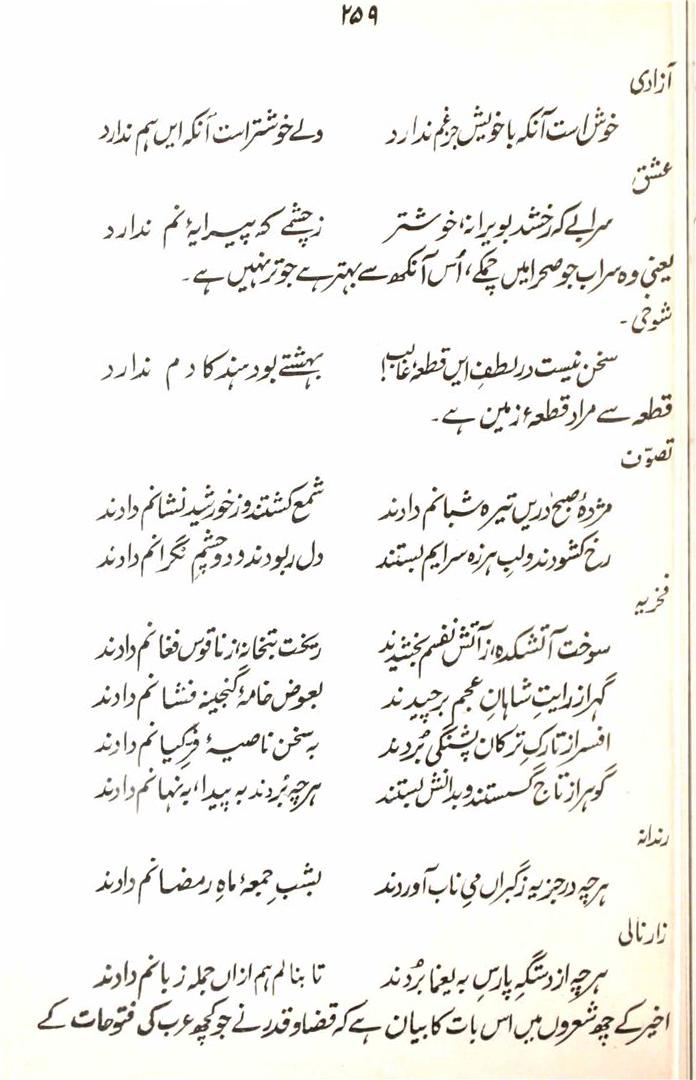 ۲۵۹
آزادی
خوش است آنکہ با خویش جز غم ندارد ولے خوشتر است آنکہ ایں ہم ندارد
عشق
سرابے کہ رخشد بویرانہ، خوشتر زچشمے کہ پیرایۂ نم ندارد
یعنی وہ سراب جو صحرا میں چمکے، اُس آنکھ سے بہتر ہے جو تر نہیں ہے۔
شوخی۔
سخن نیست در لطفِ ایں قطعہ غالب! بہشتے بود ہند کادم ندارد
قطعہ سے مراد قطعۂ زمین ہے۔
تصوّف
مژدۂ صبح دریں تیرہ شبانم دادند شمع کشتند و زخورشید نشانم دادند
رخ کشودند و لبِ ہرزہ سرایم بستند دل ربودند و دو چشمِ نگرانم دادند
فخریہ
سوخت آتشکدہ، ز آتش نفسم بخشیدند ریخت بتخانہ، از ناقوس فغانم دادند
گہر از رایتِ شاہانِ عجم برچیدند بعوض خامۂ گنجینہ فشانم دادند
افسر از تارکِ ترکان پشنگی بُردند بہ سخن ناصیۂ فرِّ کیانم دادند
گوہر از تاج گسستند و بدانش بستند ہرچہ بُردند بہ پیدا، بہ نہانم دادند
رندانہ
ہرچہ در جزیہ زگبراں میِ ناب آوردند بشبِ جمعۂ ماہِ رمضانم دادند
زارنالی
ہرچہ از دستگہِ پارس بہ یغما بُردند تا بنالم ہم ازاں جملہ زبانم دادند
اخیر کے چھ شعروں میں اس بات کا بیان ہے کہ قضا و قدر نے جو کچھ عرب کی فتوحات کے